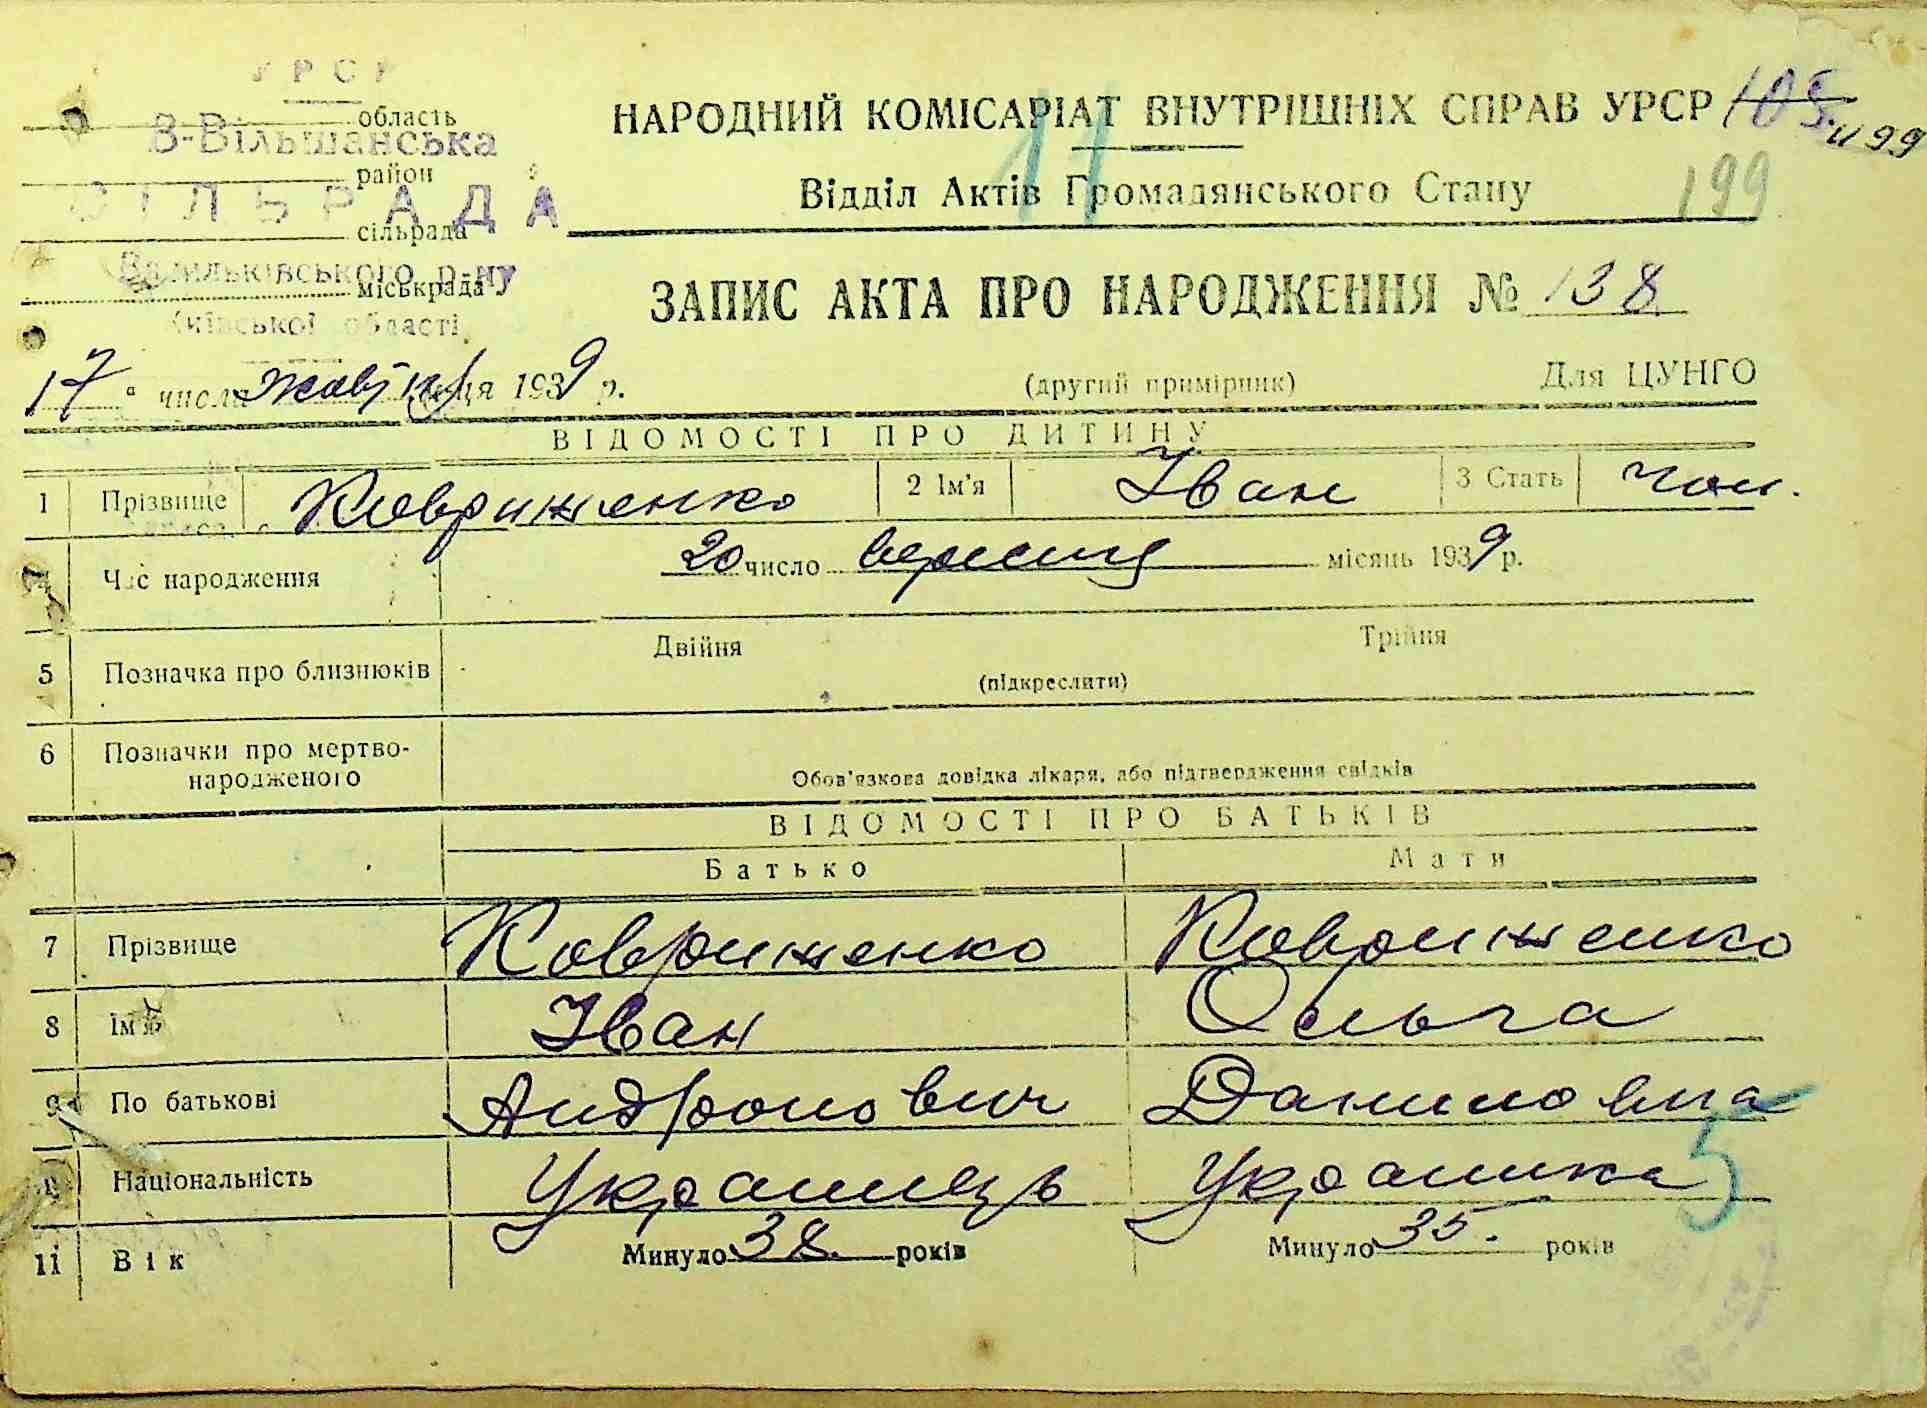 УРСР
область
В-Вільшанська
район
СІЛЬРАДА
сільрада
Васильківського р-ну
міськрада
Київської області
НАРОДНИЙ КОМІСАРІАТ ВНУТРІШНІХ СПРАВ УРСР 105
и 99
Відділ Актів Громадянського Стану 199
11
ЗАПИС АКТА ПРО НАРОДЖЕННЯ № 138
17 " числа жовтня місяця 1939 р. (другий примірник) Для ЦУНГО
ВІДОМОСТІ ПРО ДИТИНУ
1 Прізвище Ковриженко 2 Ім'я Іван 3 Стать чол.
4 Час народження 20 число вересня місяць 1939 р.
5 Позначка про близнюків Двійня Трійня
(підкреслити)
6 Позначки про мертво-
народженого Обов'язкова довідка лікаря, або підтвердження свідків
ВІДОМОСТІ ПРО БАТЬКІВ
Батько Мати
7 Прізвище Ковриженко Ковриженко
8 Ім'я Іван Ольга
9 По батькові Андронович Даниловна
5
Національність Украинець Украинка
11 Вік Минуло 38. років Минуло 35. років